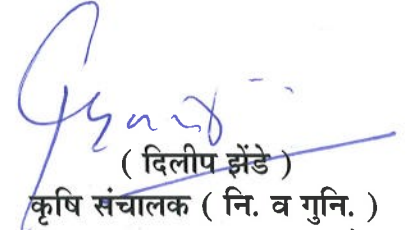 ( दिलीप झेंडे )
कृषि संचालक ( नि. व गुनि. )